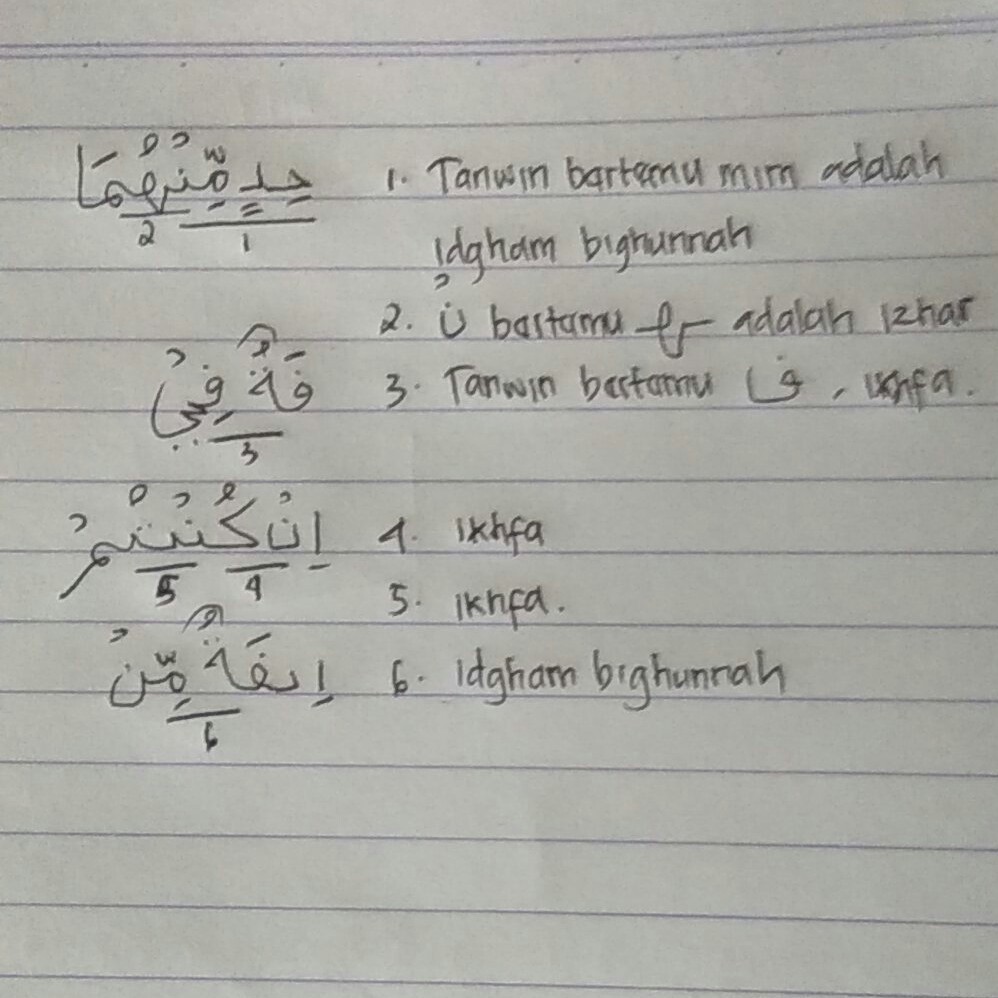 حِدٍ مِّنْهُمَا 1. Tanwin bertemu mim adalah
2 1 idgham bighunnah
2. نْ bertemu ه adalah izhar
فَةٌ فِيْ 3. Tanwin bertemu ف, ikhfa.
3
اِنْ كُنْتُمْ 4. ikhfa
5 4
5. ikhfa.
اِىفَةٌ مِّنْ 6. idgham bighunnah
6